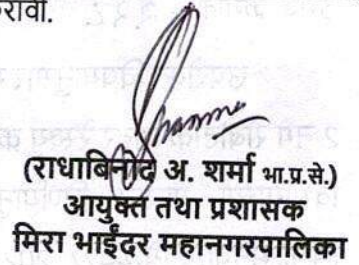 करावी.
(राधाबिनोद अ. शर्मा भा.प्र.से.)
आयुक्त तथा प्रशासक
मिरा भाईंदर महानगरपालिका